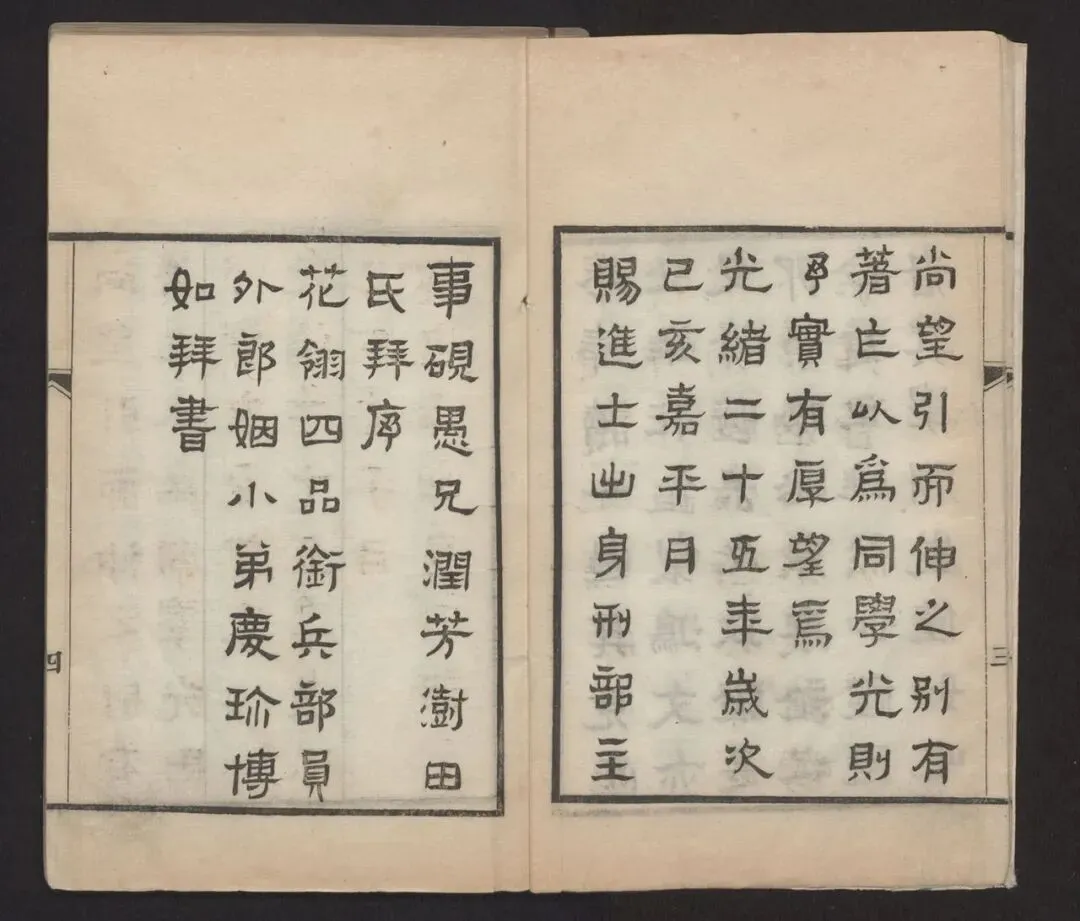 尚望引而伸之別有
著亡以爲同學光則
予實有厚望焉
光緒二十五年歲次
己亥嘉平月
賜進士出身刑部主
三
事硯愚兄潤芳澍田
氏拜序
花翎四品銜兵部員
外郎姻小弟慶珍博
如拜書
四